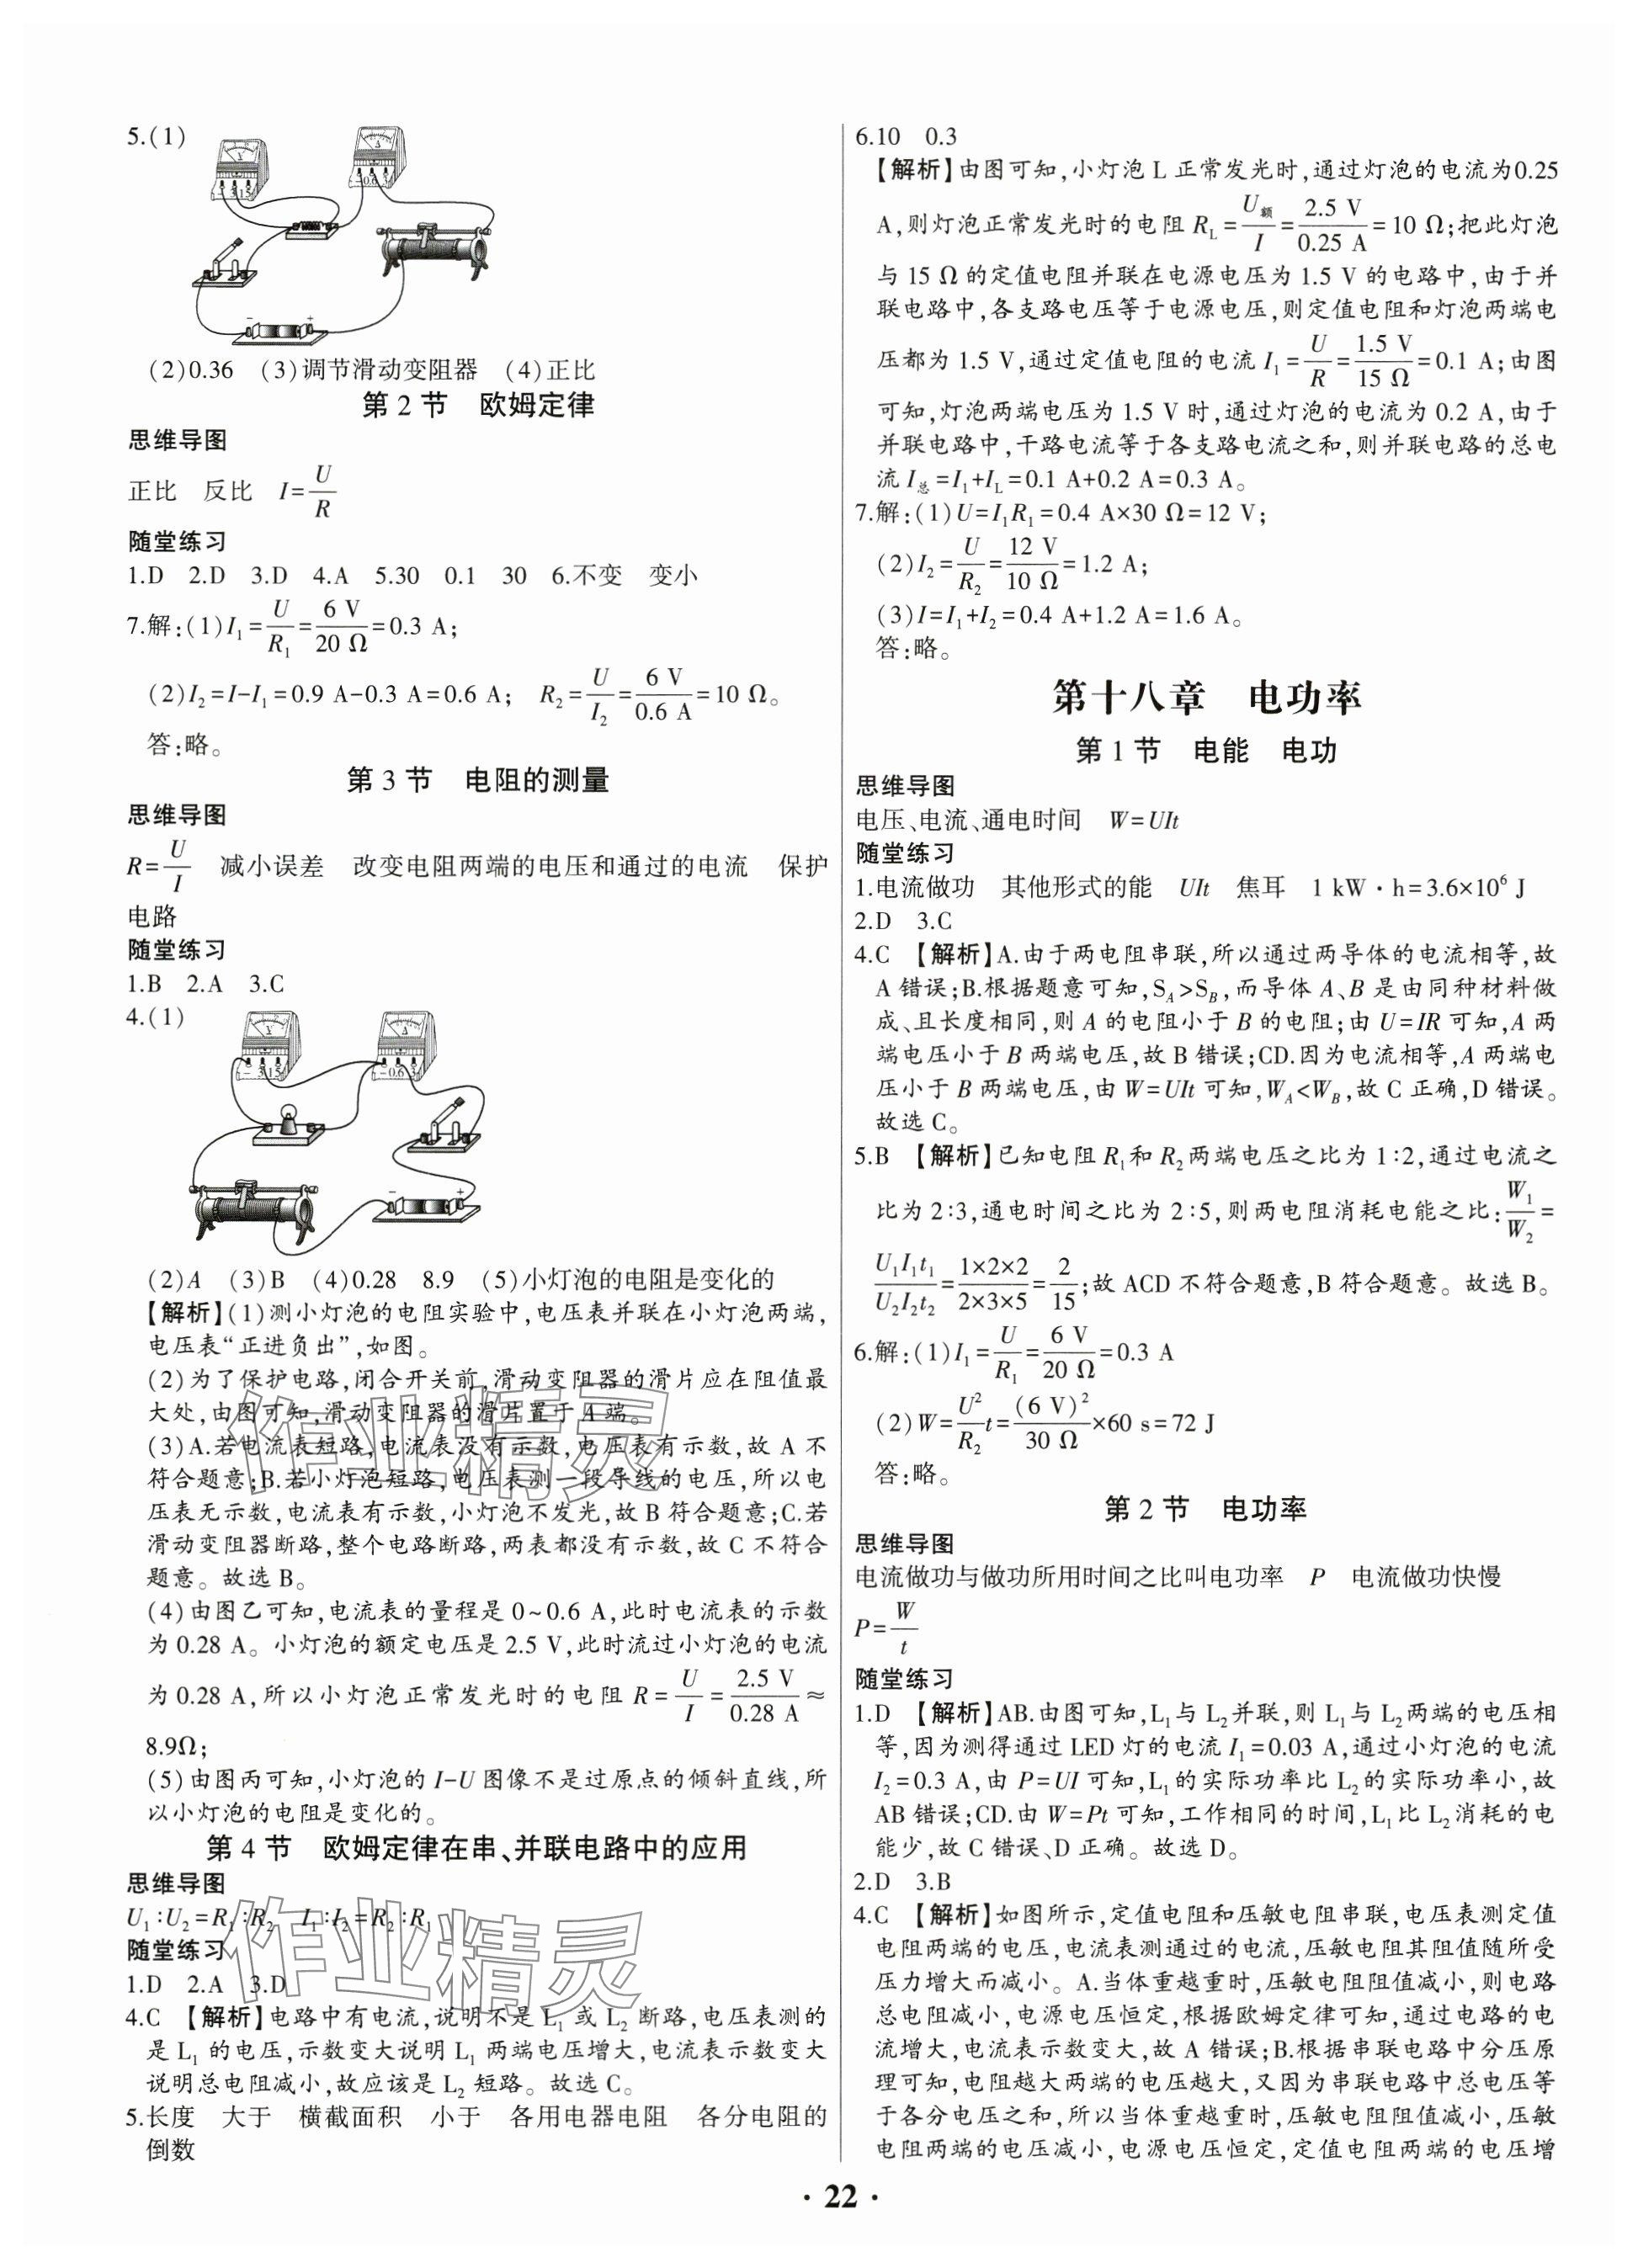 5.(1)
(2)0.36 (3)调节滑动变阻器 (4)正比
第 2 节 欧姆定律
思维导图
正比 反比 I=U/R
随堂练习
1.D 2.D 3.D 4.A 5.30 0.1 30 6.不变 变小
7.解:(1)I₁=U/R₁=6 V/20 Ω=0.3 A;
(2)I₂=I-I₁=0.9 A-0.3 A=0.6 A; R₂=U/I₂=6 V/0.6 A=10 Ω。
答:略。
第 3 节 电阻的测量
思维导图
R=U/I 减小误差 改变电阻两端的电压和通过的电流 保护
电路
随堂练习
1.B 2.A 3.C
4.(1)
(2)A (3)B (4)0.28 8.9 (5)小灯泡的电阻是变化的
【解析】(1)测小灯泡的电阻实验中,电压表并联在小灯泡两端,
电压表“正进负出”,如图。
(2)为了保护电路,闭合开关前,滑动变阻器的滑片应在阻值最
大处,由图可知,滑动变阻器的滑片置于 A 端。
(3)A.若电流表短路,电流表没有示数,电压表有示数,故 A 不
符合题意;B.若小灯泡短路,电压表测一段导线的电压,所以电
压表无示数,电流表有示数,小灯泡不发光,故 B 符合题意;C.若
滑动变阻器断路,整个电路断路,两表都没有示数,故 C 不符合
题意。故选 B。
(4)由图乙可知,电流表的量程是 0~0.6 A,此时电流表的示数
为 0.28 A。小灯泡的额定电压是 2.5 V,此时流过小灯泡的电流
为 0.28 A,所以小灯泡正常发光时的电阻 R=U/I=2.5 V/0.28 A≈
8.9Ω;
(5)由图丙可知,小灯泡的 I-U 图像不是过原点的倾斜直线,所
以小灯泡的电阻是变化的。
第 4 节 欧姆定律在串、并联电路中的应用
思维导图
U₁∶U₂=R₁∶R₂ I₁∶I₂=R₂∶R₁
随堂练习
1.D 2.A 3.D
4.C 【解析】电路中有电流,说明不是 L₁ 或 L₂ 断路,电压表测的
是 L₁ 的电压,示数变大说明 L₁ 两端电压增大,电流表示数变大
说明总电阻减小,故应该是 L₂ 短路。故选 C。
5.长度 大于 横截面积 小于 各用电器电阻 各分电阻的
倒数
6.10 0.3
【解析】由图可知,小灯泡 L 正常发光时,通过灯泡的电流为0.25
A,则灯泡正常发光时的电阻 R_L=U额/I=2.5 V/0.25 A=10 Ω;把此灯泡
与 15 Ω 的定值电阻并联在电源电压为 1.5 V 的电路中,由于并
联电路中,各支路电压等于电源电压,则定值电阻和灯泡两端电
压都为 1.5 V,通过定值电阻的电流 I₁=U/R=1.5 V/15 Ω=0.1 A;由图
可知,灯泡两端电压为 1.5 V 时,通过灯泡的电流为 0.2 A,由于
并联电路中,干路电流等于各支路电流之和,则并联电路的总电
流 I总=I₁+I_L=0.1 A+0.2 A=0.3 A。
7.解:(1)U=I₁R₁=0.4 A×30 Ω=12 V;
(2)I₂=U/R₂=12 V/10 Ω=1.2 A;
(3)I=I₁+I₂=0.4 A+1.2 A=1.6 A。
答:略。
第十八章 电功率
第 1 节 电能 电功
思维导图
电压、电流、通电时间 W=UIt
随堂练习
1.电流做功 其他形式的能 UIt 焦耳 1 kW·h=3.6×10⁶ J
2.D 3.C
4.C 【解析】A.由于两电阻串联,所以通过两导体的电流相等,故
A 错误;B.根据题意可知,S_A>S_B,而导体 A、B 是由同种材料做
成、且长度相同,则 A 的电阻小于 B 的电阻;由 U=IR 可知,A 两
端电压小于 B 两端电压,故 B 错误;CD.因为电流相等,A 两端电
压小于 B 两端电压,由 W=UIt 可知,W_A<W_B,故 C 正确,D 错误。
故选 C。
5.B 【解析】已知电阻 R₁和 R₂两端电压之比为 1∶2,通过电流之
比为 2∶3,通电时间之比为 2∶5,则两电阻消耗电能之比:W₁/W₂=
U₁I₁t₁/U₂I₂t₂=1×2×2/2×3×5=2/15;故 ACD 不符合题意,B 符合题意。故选 B。
6.解:(1)I₁=U/R₁=6 V/20 Ω=0.3 A
(2)W=U²/R₂t=(6 V)²/30 Ω×60 s=72 J
答:略。
第 2 节 电功率
思维导图
电流做功与做功所用时间之比叫电功率 P 电流做功快慢
P=W/t
随堂练习
1.D 【解析】AB.由图可知,L₁与 L₂并联,则 L₁与 L₂两端的电压相
等,因为测得通过 LED 灯的电流 I₁=0.03 A,通过小灯泡的电流
I₂=0.3 A,由 P=UI 可知,L₁的实际功率比 L₂的实际功率小,故
AB 错误;CD.由 W=Pt 可知,工作相同的时间,L₁比 L₂消耗的电
能少,故 C 错误、D 正确。故选 D。
2.D 3.B
4.C 【解析】如图所示,定值电阻和压敏电阻串联,电压表测定值
电阻两端的电压,电流表测通过的电流,压敏电阻其阻值随所受
压力增大而减小。A.当体重越重时,压敏电阻阻值减小,则电路
总电阻减小,电源电压恒定,根据欧姆定律可知,通过电路的电
流增大,电流表示数变大,故 A 错误;B.根据串联电路中分压原
理可知,电阻越大两端的电压越大,又因为串联电路中总电压等
于各分电压之和,所以当体重越重时,压敏电阻阻值减小,压敏
电阻两端的电压减小,电源电压恒定,定值电阻两端的电压增
· 22 ·
作业精灵
作业精灵